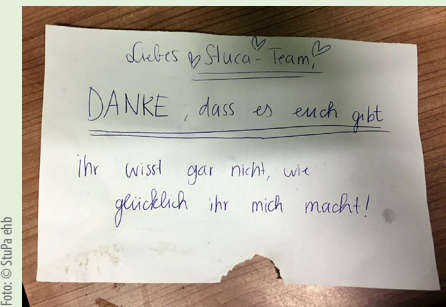 Liebes Stuca-Team,
DANKE, dass es euch gibt
ihr wisst gar nicht, wie
glücklich ihr mich macht!
Foto: © StuPa ehb